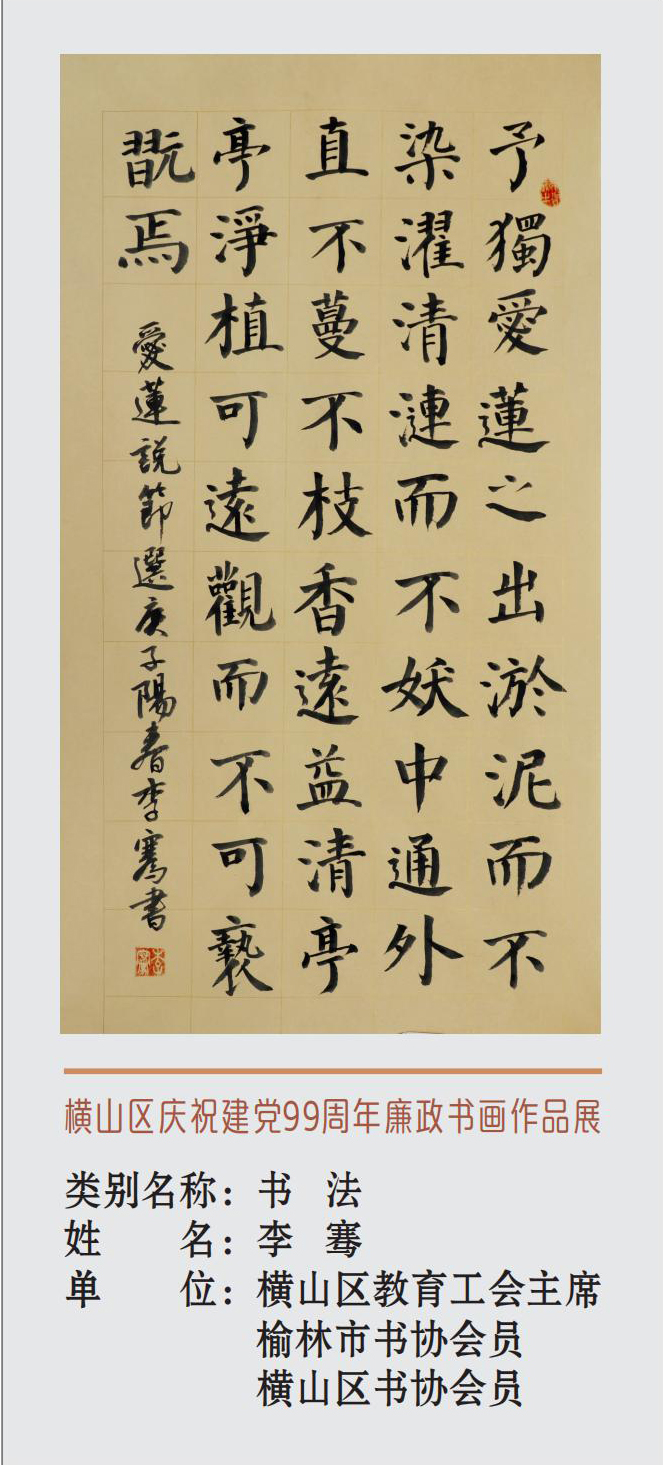 予獨愛蓮之出淤泥而不
染濯清漣而不妖中通外
直不蔓不枝香遠益清亭
亭淨植可遠觀而不可褻
翫焉
愛蓮說節選庚子陽春李騫書
横山区庆祝建党99周年廉政书画作品展
类别名称：书 法
姓 名：李 骞
单 位：横山区教育工会主席
榆林市书协会员
横山区书协会员